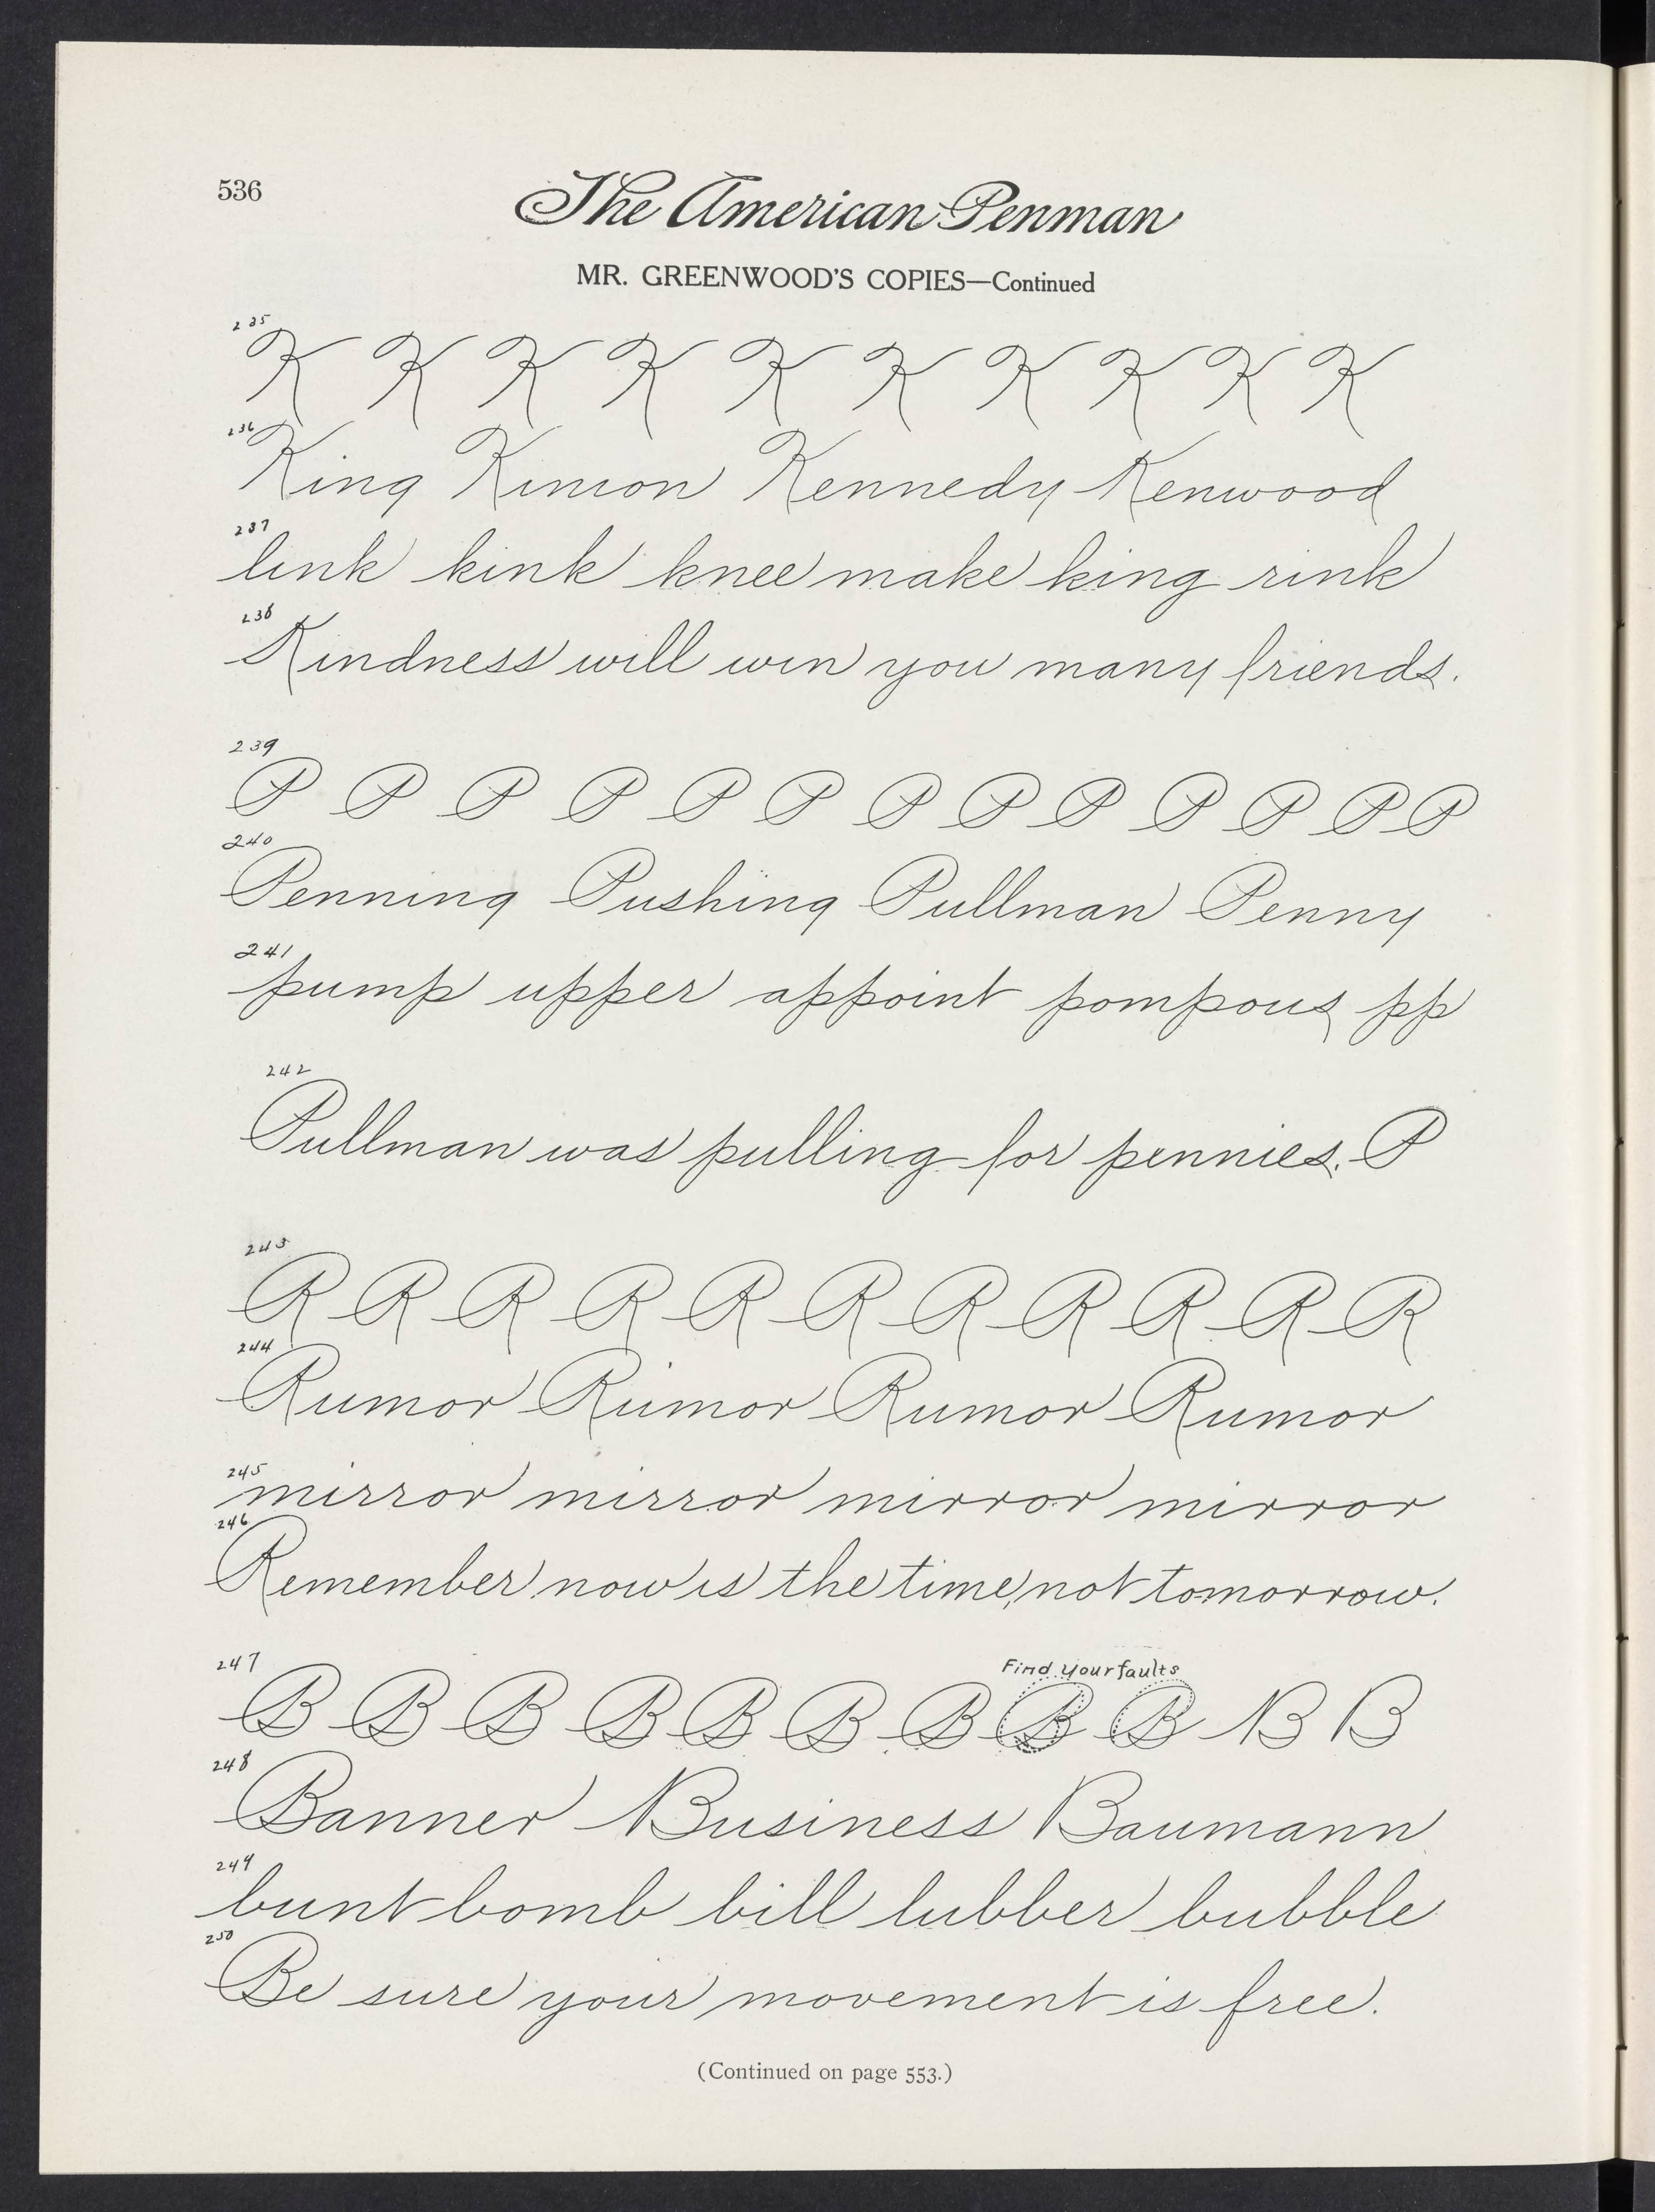 536
The American Penman
MR. GREENWOOD'S COPIES—Continued
235
K K K K K K K K K K
236
King Kinion Kennedy Kenwood
237
link kink knee make king rink
238
Kindness will win you many friends.
239
P P P P P P P P P P P P P
240
Penning Pushing Pullman Penny
241
pump upper appoint pompous pp
242
Pullman was pulling for pennies. P
243
R R R R R R R R R R R
244
Rumor Rumor Rumor Rumor
245
mirror mirror mirror mirror
246
Remember now is the time, not tomorrow.
247
Find your faults
B B B B B B B B B B B
248
Banner Business Baumann
249
bunt bomb bill lubber bubble
250
Be sure your movement is free.
(Continued on page 553.)